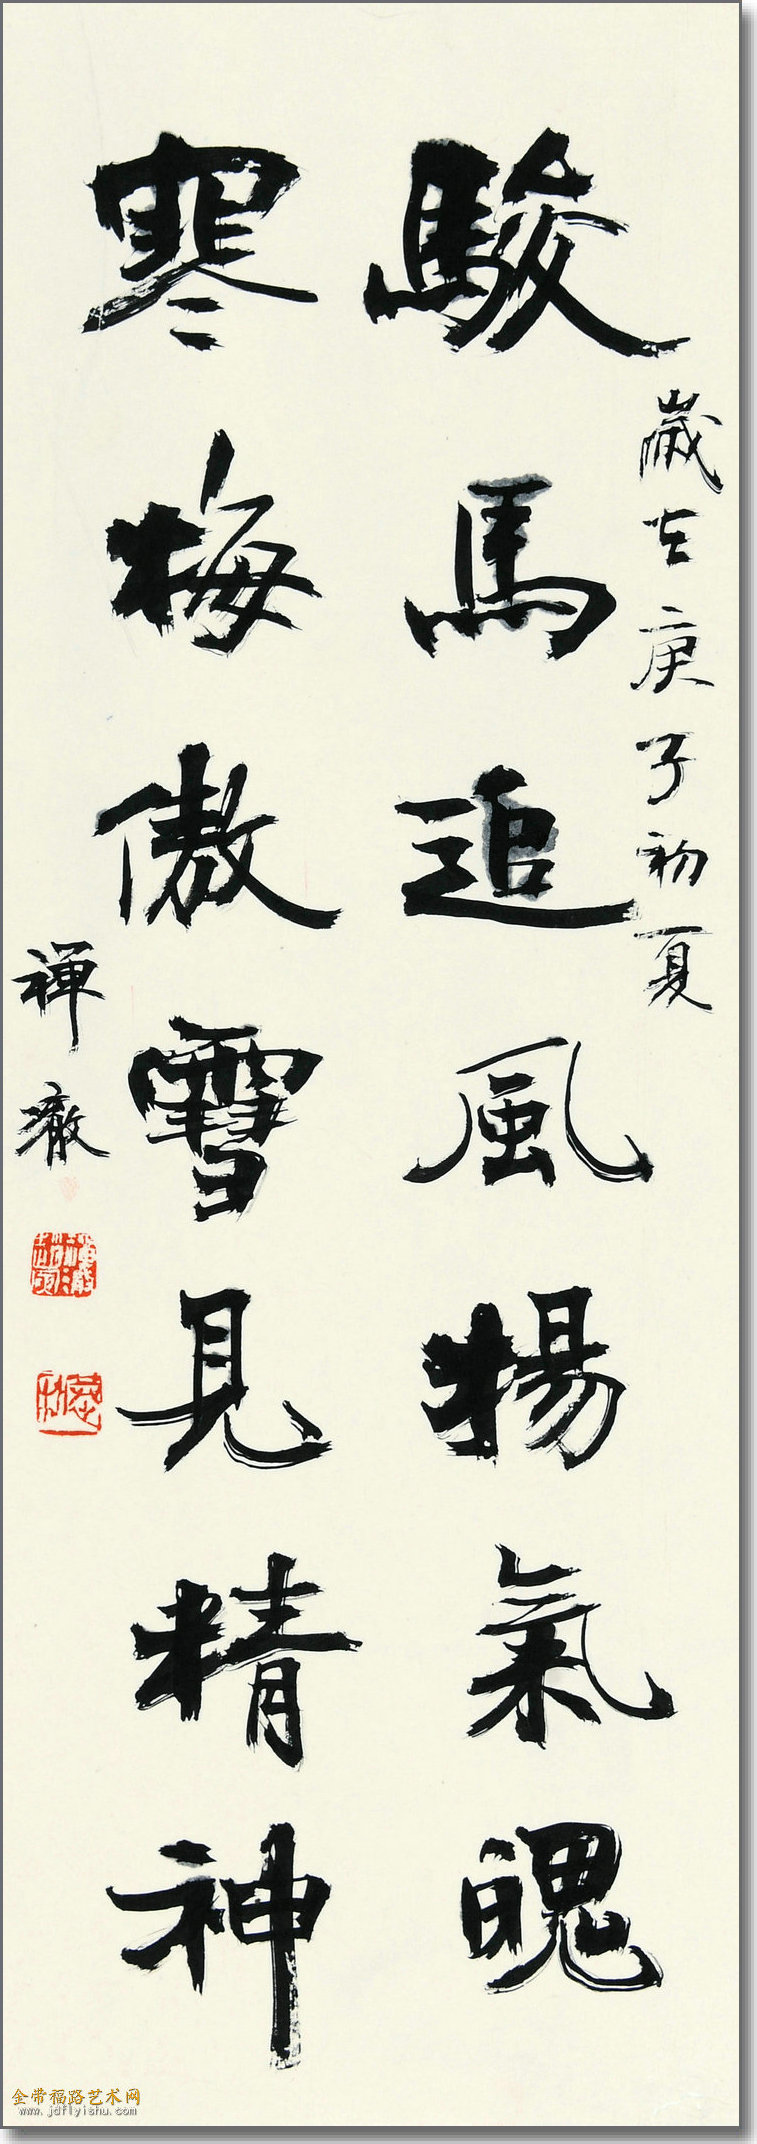 歲在庚子初夏
駿馬追風揚氣魄
寒梅傲雪見精神
禪徹
金带福路艺术网
www.jdflyishu.com